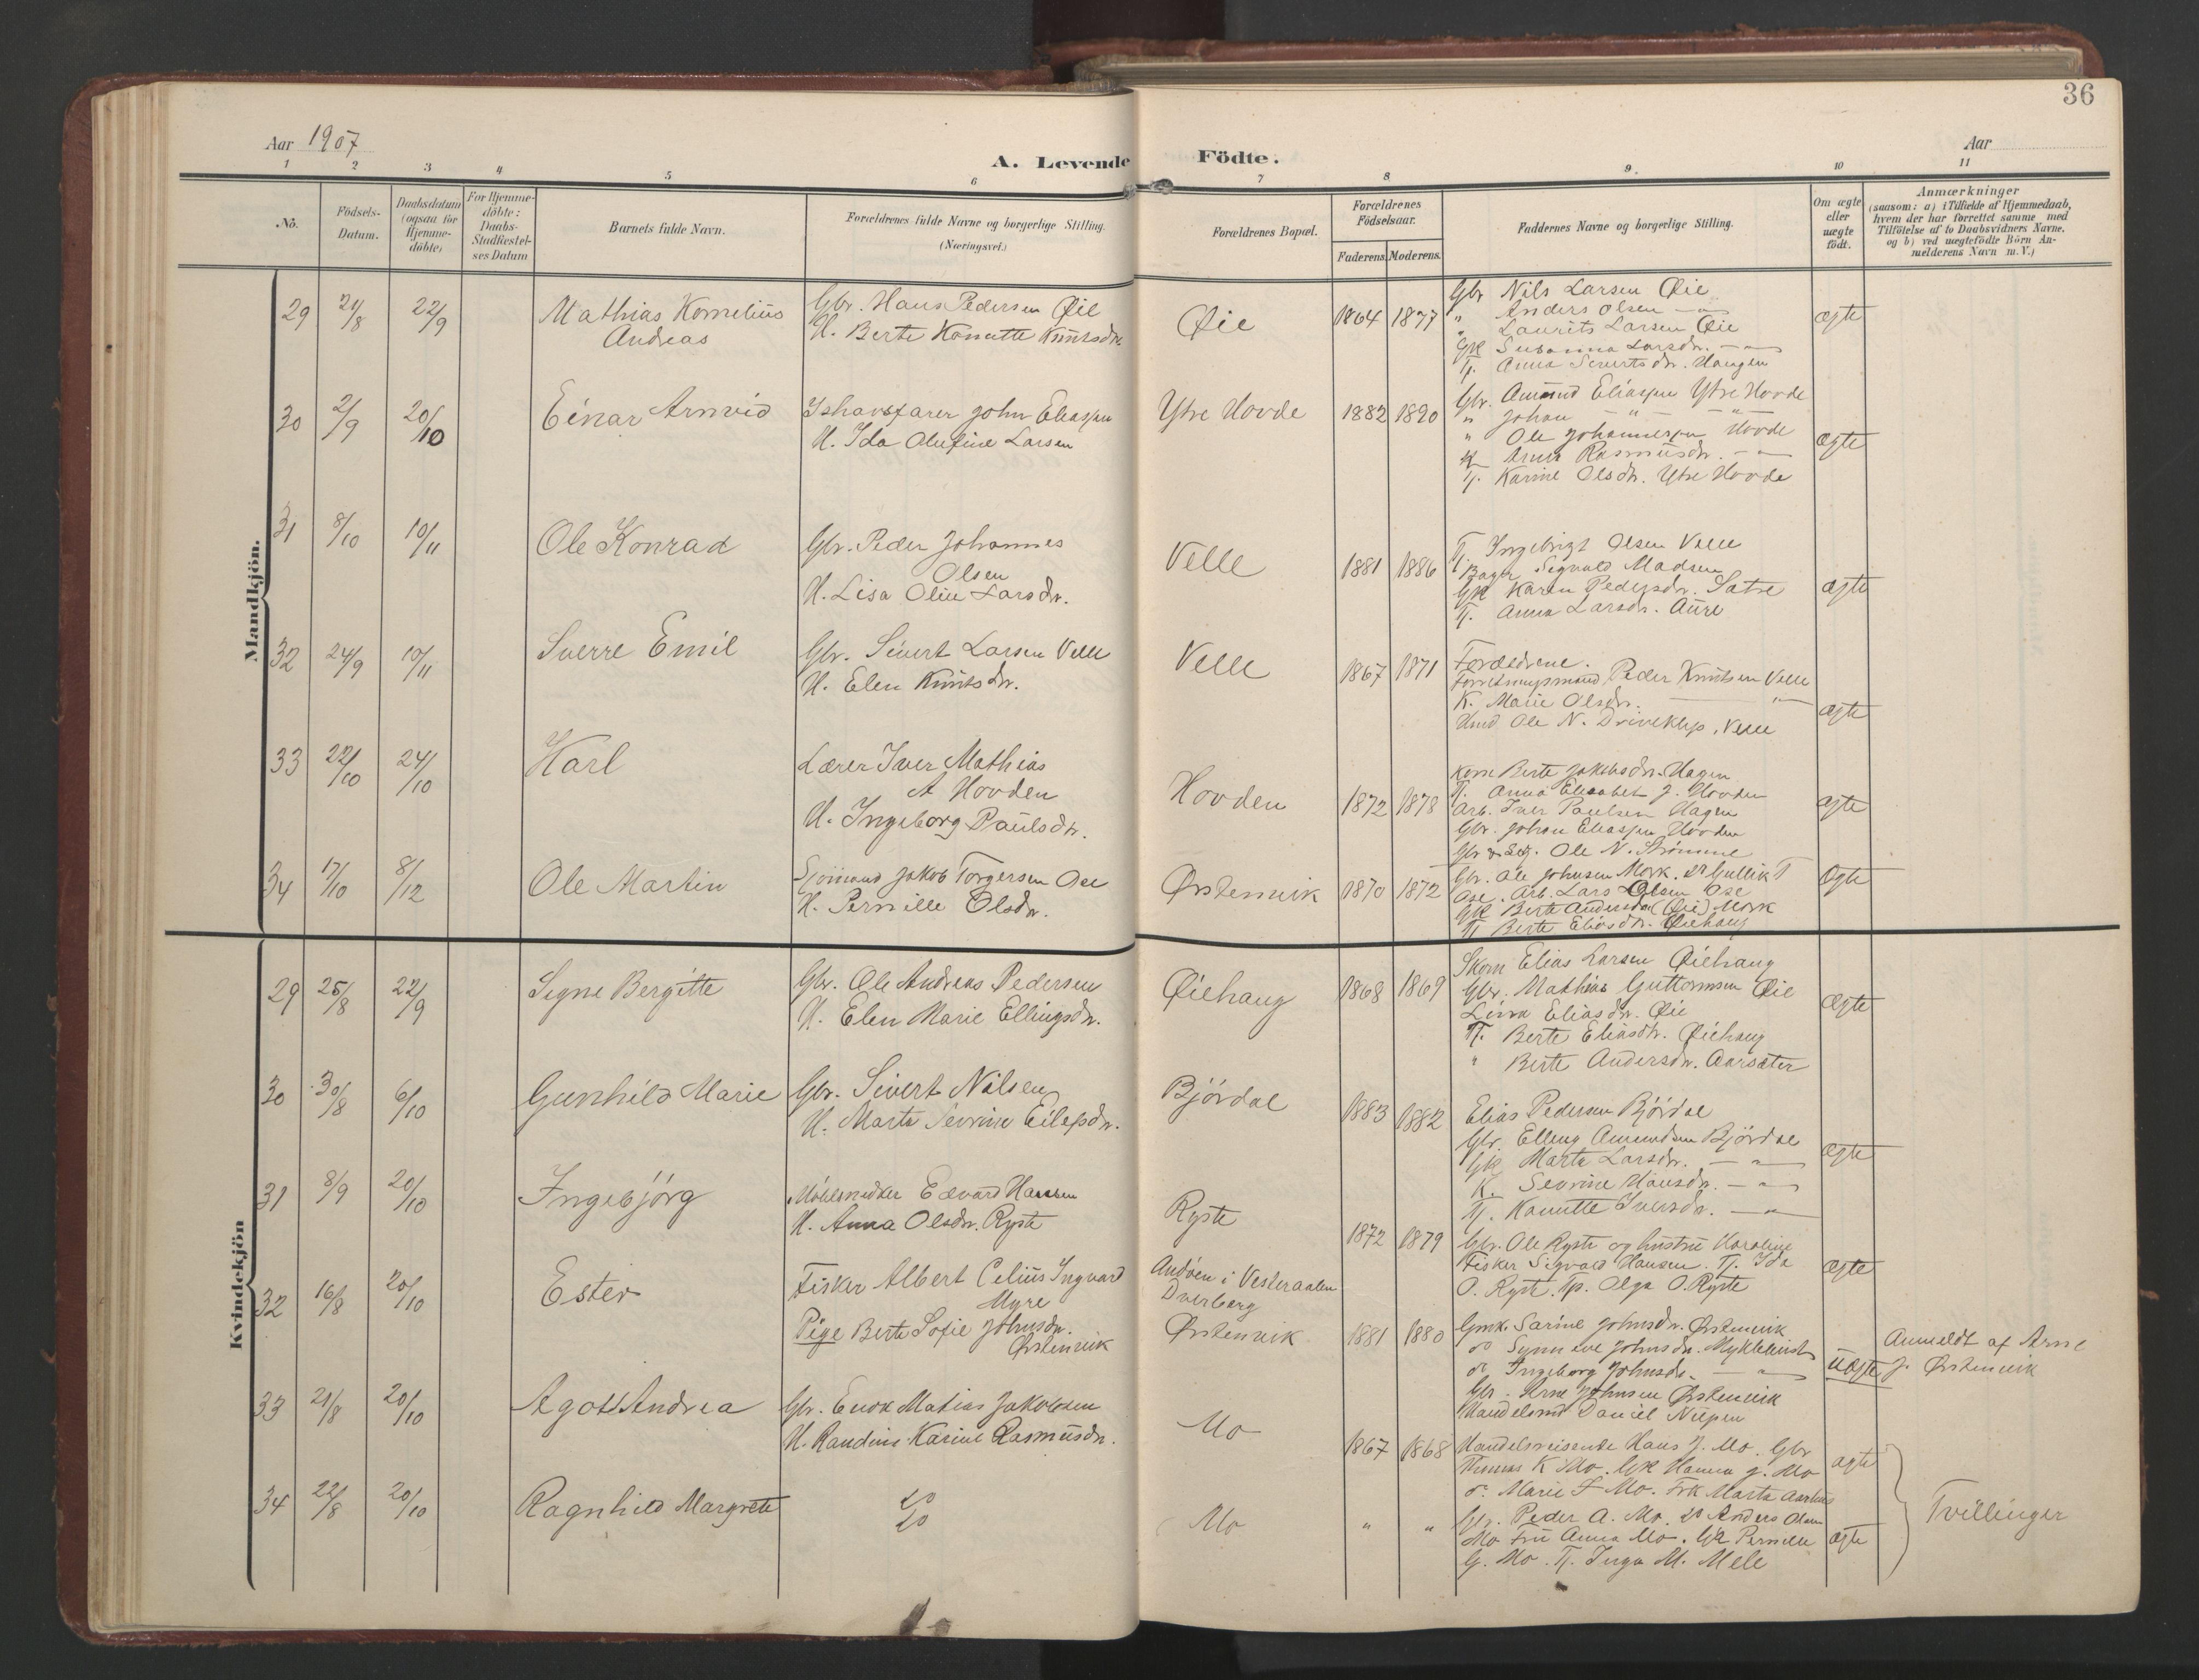 36
Aar 1907
Aar
A. Levende Födte.
1 2 3 4 5 6 7 8 9. 10 11
No.
Födsels-Datum.
Daabsdatum (ogsaa for Hjemme-döbte)
For Hjemme-döbte: Daabs-Stadfæstel-ses Datum
Barnets fulde Navn.
Forældrenes fulde Navne og borgerlige Stilling. (Næringsvei.)
Forældrenes Bopæl.
Forældrenes Födselsaar.
Faderens. Moderens.
Faddernes Navne og borgerlige Stilling.
Om ægte eller uægte födt.
Anmærkninger
(saasom: a) i Tilfælde af Hjemmedaab,
hvem der har forrettet samme med
Tilföielse af to Daabsvidners Navne,
og b) ved uægtefödte Börn An-
melderens Navn m. V.)
Mandkjön.
29 21/8 22/9 Mathias Kornelius Andreas
Gbr. Hans Pedersen Øie
H. Berte Konutte Knutsdr.
Øie 1864 1877
Gbr Nils Larsen Øie
" Anders Olsen — " —
" Laurits Larsen Øie
Gk Susanna Larsdr. — " —
Tj. Anna Sivertsdr. Haugen
ægte
30 2/9 20/10 Einar Arnvid
Ishavsfarer John Eliassen
H. Ida Olufine Larsen
Ytre Hovde 1882 1890
Gbr. Amund Eliassen Ytre Hovde
" Johan — " — — " —
" Ole Johannessen Hovde
K Anna Rasmusdr. — " —
Tj. Karine Olsdr. Ytre Hovde
ægte
31 8/10 10/11 Ole Konrad
Gbr. Peder Johannes
Olsen
H. Lisa Oline Larsdr.
Velle 1881 1886
Tj. Ingebrigt Olsen Velle
Bager Sigvald Madsen
Gk Karen Pedersdr. Sætre
Tj. Anna Larsdr. Aure
ægte
32 24/9 10/11 Sverre Emil
Gbr. Sivert Larsen Velle
H. Elen Knutsdr.
Velle 1867 1871
Forældrene.
Forretningsmand Peder Knutsen Velle
K. Marie Olsdr. — " —
Ole N. Driveklep, Velle
ægte
33 22/10 24/10 Karl
Lærer Iver Mathias
A Hovden
H. Ingeborg Paulsdr.
Hovden 1872 1878
Kone Berte Jakobsdr. Hagen
Tj. Anna Elisabet J. Hovden
Arb. Iver Paulsen Hagen
Gbr. Johan Eliassen Hovden
Ole N. Strömme
ægte
34 17/10 8/12 Ole Martin
Sjömand Jakob Torgersen Ose
H. Pernille Olsdr.
Ørstenvik 1870 1872
Gbr. Ole Johnsen Mork. do Gullik T
Ose. Arb. Lars Olsen Ose
Gk Berte Andersdr (Øie) Mork
Tj Berte Eliasdr. Øiehaug
Ægte
Kvindekjön
29 25/8 22/9 Signe Bergitte
Gbr. Ole Andreas Pedersen
H. Elen Marie Ellingsdr.
Øiehaug 1868 1869
Skom Elias Larsen Øiehaug
Gbr. Mathias Guttormsen Øie
Lina Eliasdr. Øie
Tj. Berte Eliasdr. Øiehaug
" Berte Andersdr. Aarsæter
ægte
30 30/8 6/10 Gunhild Marie
Gbr. Sivert Nilsen
H. Marta Sevrine Eilefsdr.
Björdal 1883 1882
Elias Pedersen Björdal
Gbr. Elling Amundsen Björdal
Gk Marta Larsdr. — " —
K. Sevrine Hansdr. — " —
Tj. Konutte Iversdr. — " —
ægte
31 8/9 20/10 Ingebjörg
Möbelsnedker Edvard Hansen
H. Anna Olsdr. Ryste
Ryste 1872 1879
Gbr. Ole Ryste og hustru Karoline
Fisker Sigvald Hansen. Tj. Ida
O. Ryste. Tp. Olga O. Ryste
ægte
32 16/8 20/10 Ester
Fisker Albert Celius Ingvard
Myre
Pige Berte Sofie Johnsdr.
Ørstenvik
Andöen i Vesteraalen
Dverberg
Ørstenvik 1881 1880
Gmk. Sarine Johnsdr. Ørstenvik
do Synneve Johnsdr. Myklebust
do Ingeborg Johnsdr. — " —
Gbr. Arne Johnsen Ørstenvik
Handelsmd Daniel Nupen
uægte
Anmeldt af Arne
J. Ørstenvik
33 21/8 20/10 Agot Andrea
Gbr. Enok Matias Jakobsen
H. Randine Karine Rasmusdr.
Mo 1867 1868
Handelsreisende Hans J. Mo. Gbr
Thomas K Mo. Gk Hanna J. Mo
do. Marie F Mo. Frk Marta Aarhus
ægte
34 22/8 20/10 Ragnhild Margrete
do
do
Mo " "
Gbr. Peder A. Mo. do Anders Olsen
Mo Fru Anna Mo. Gk Pernille
G. Mo. Tj. Inga M. Mele
ægte
Tvillinger